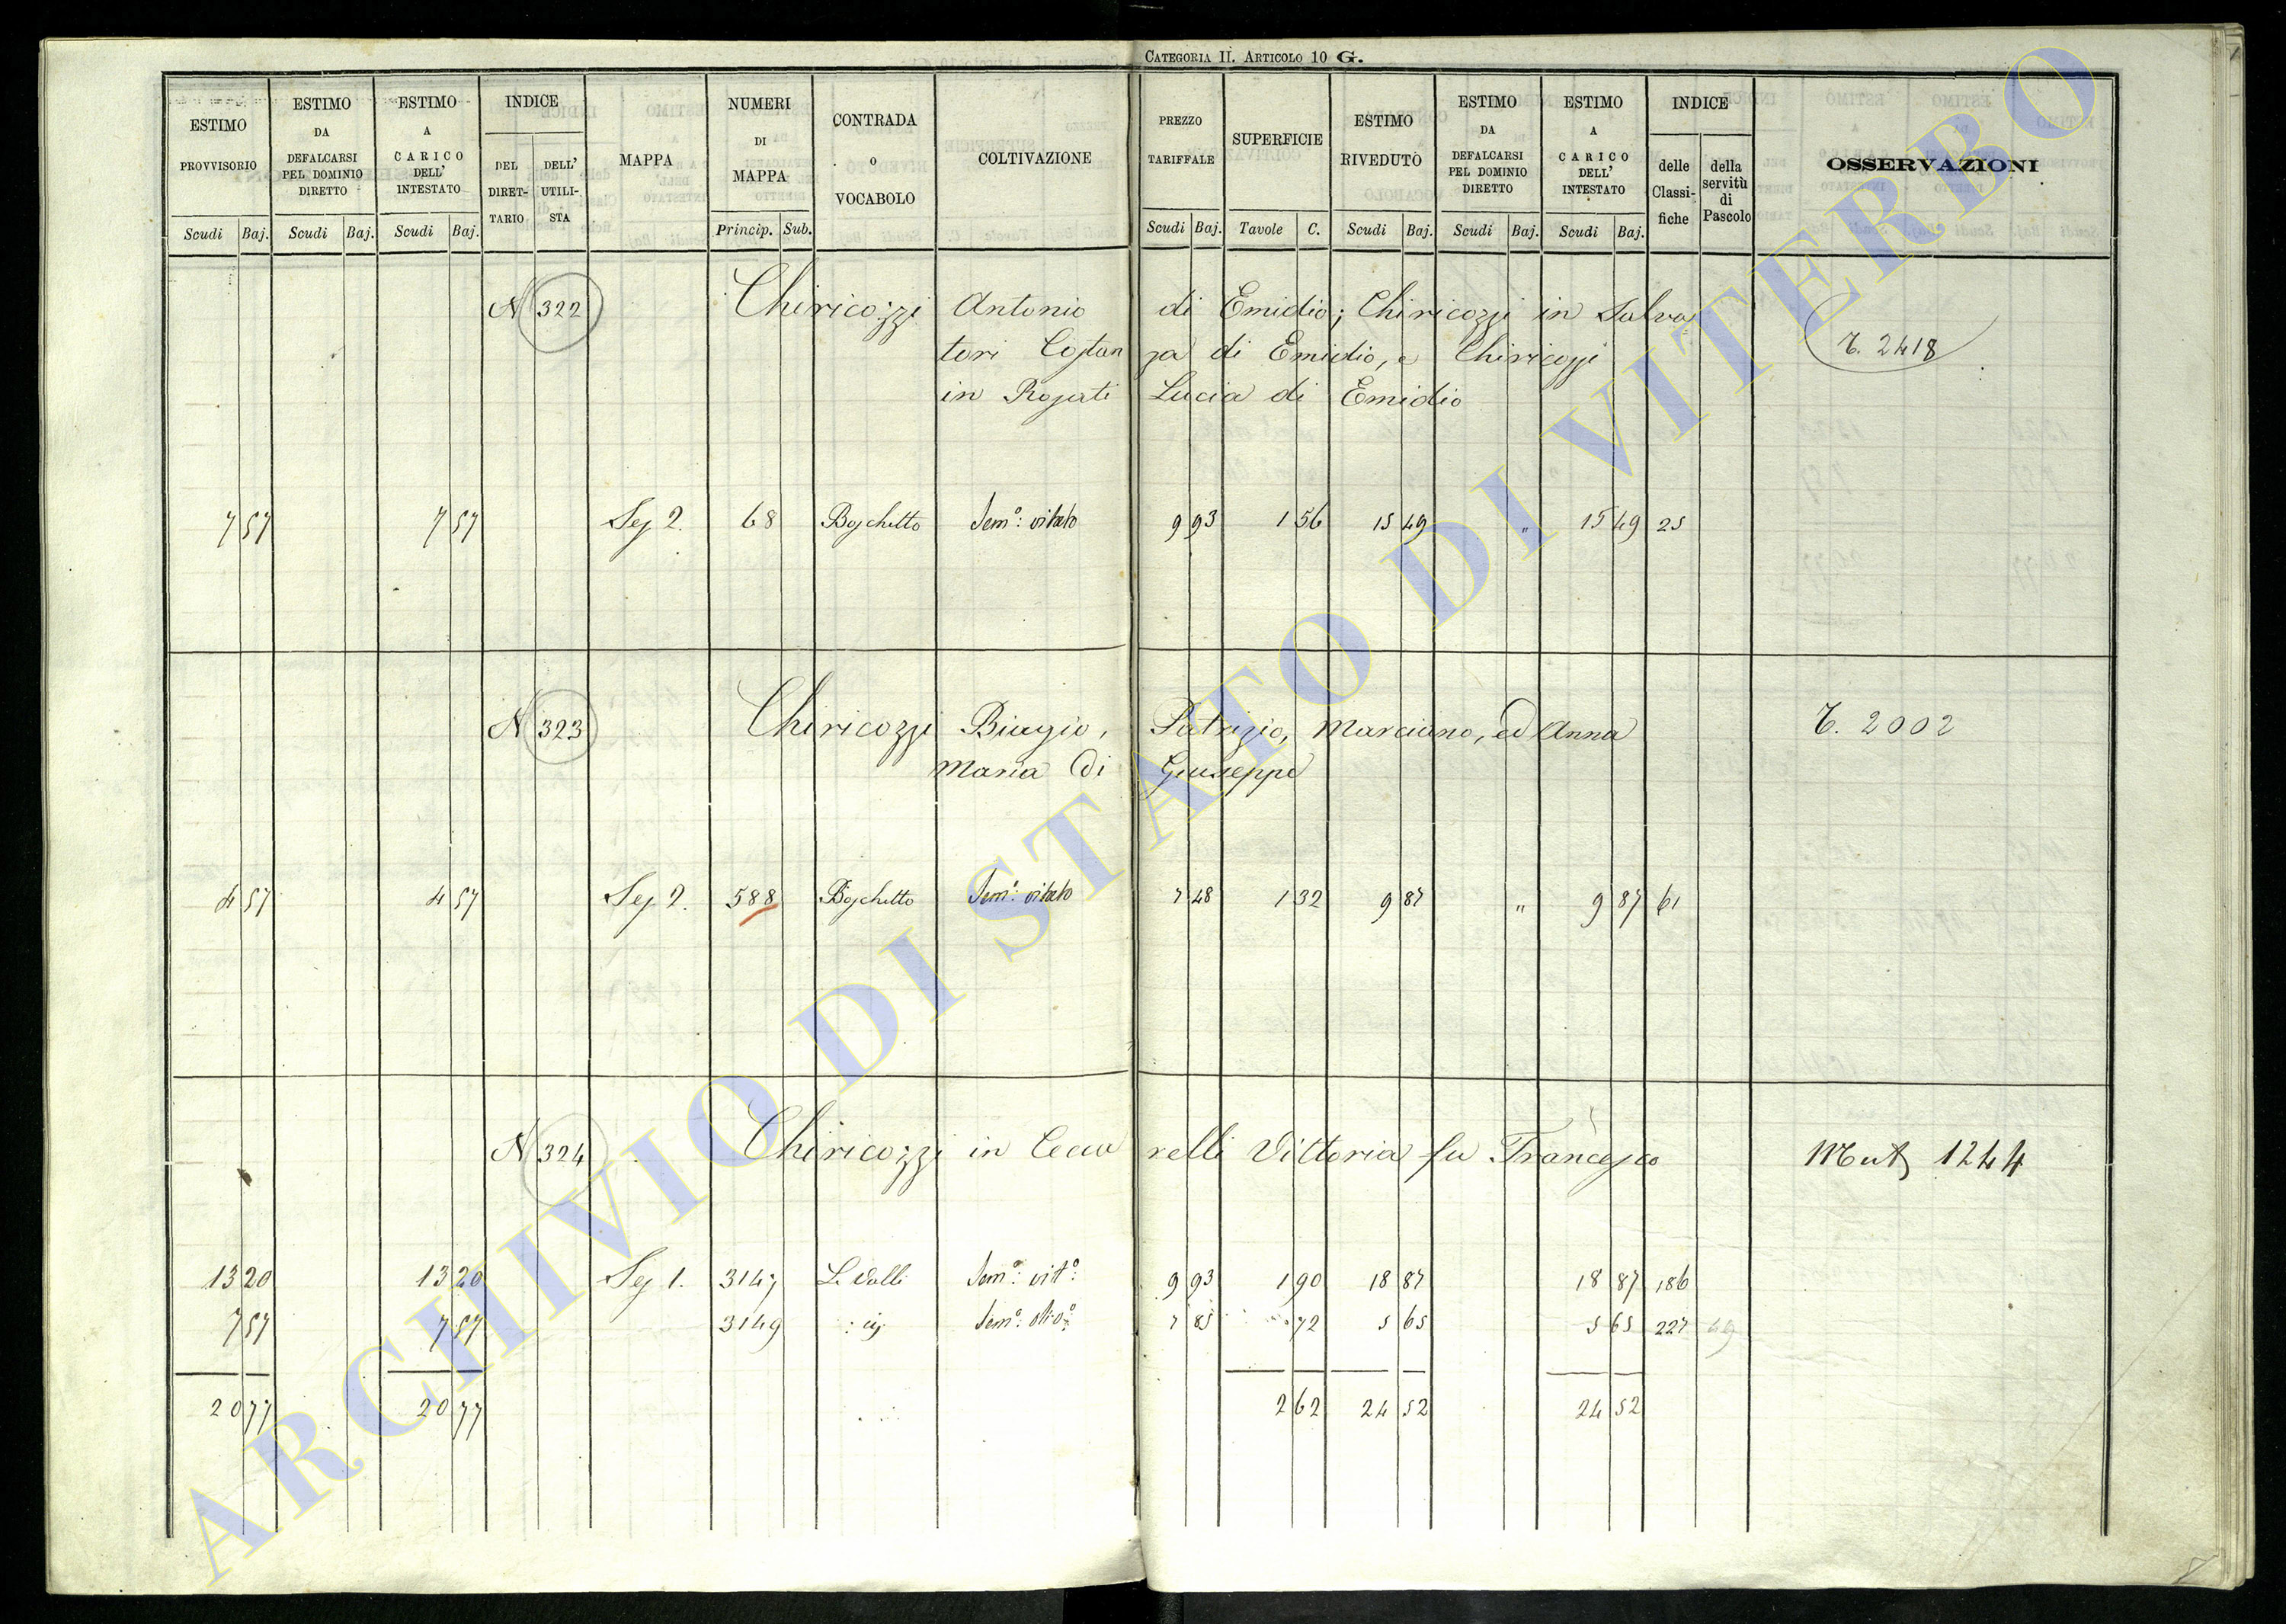 CATEGORIA II. ARTICOLO 10 G.
ESTIMO PROVVISORIO Scudi Baj.
ESTIMO DA DEFALCARSI PEL DOMINIO DIRETTO Scudi Baj.
ESTIMO A CARICO DELL' INTESTATO Scudi Baj.
INDICE DEL DIRET-TARIO DELL' UTILI-STA
MAPPA
NUMERI DI MAPPA Princip. Sub.
CONTRADA O VOCABOLO
COLTIVAZIONE
PREZZO TARIFFALE Scudi Baj.
SUPERFICIE Tavole C.
ESTIMO RIVEDUTO Scudi Baj.
ESTIMO DA DEFALCARSI PEL DOMINIO DIRETTO Scudi Baj.
ESTIMO A CARICO DELL' INTESTATO Scudi Baj.
INDICE delle Classi-fiche della servitù di Pascolo
OSSERVAZIONI
N 322 Chiricozzi Antonio di Emidio; Chiricozzi in Salva
tori Costan za di Emidio, e Chiricozzi
in Rosati Lucia di Emidio
T. 2418
7 57 7 57 Sez 2. 68 Boschetto Sem.o: vitato 9 93 1 56 15 49 " 15 49 25
N 323 Chiricozzi Biagio, Patrizio, Marciano, ed Anna
Maria di Giuseppe
T. 2002
4 57 4 57 Sez 2. 588 Boschetto Sem.o: vitato 7 48 1 32 9 87 " 9 87 61
N 324 Chiricozzi in Cecca relli Vittoria fu Francesco
1244
13 20 13 20 Sez 1. Le Valli Sem.o: vit.o: 9 93 1 90 18 87 18 87 186
7 57 7 57 3149 Sem.o: oliv.o: 7 85 72 5 65 5 65 227
20 77 20 77 2 62 24 52 24 52
ARCHIVIO DI STATO DI VITERBO